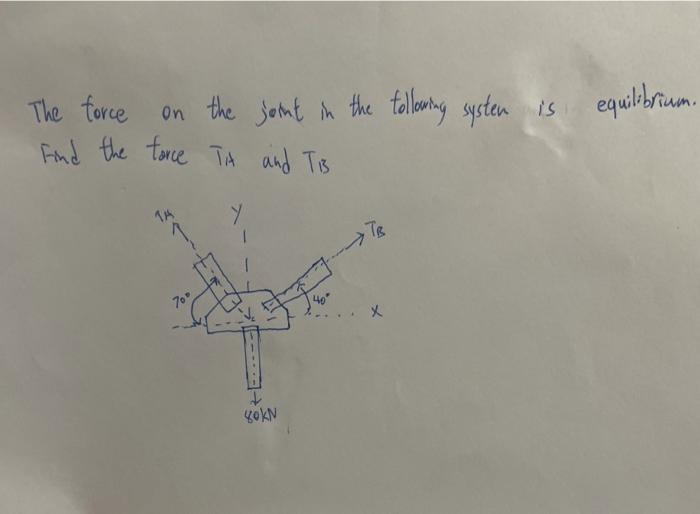 The force on the joint in the following system is equilibrium.
Find the force TA and TB
TA
Y
TB
70°
40°
X
80KN